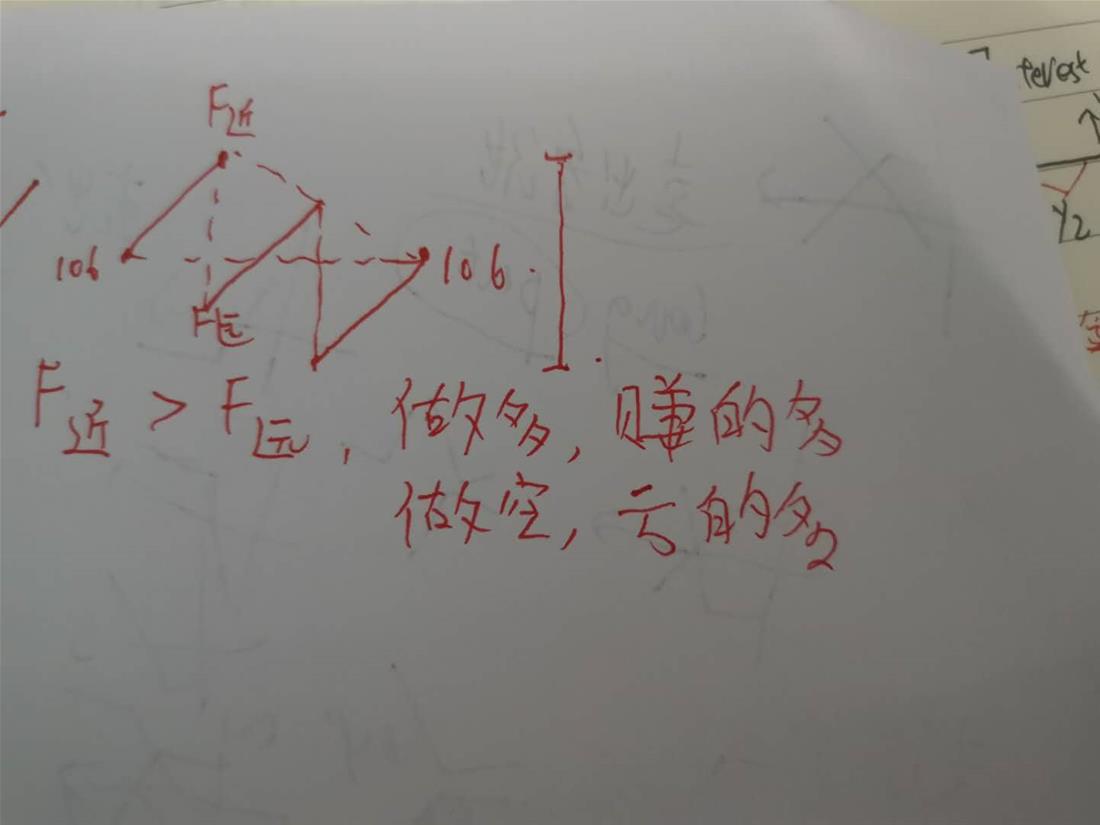 terest
F近
Y2
106
106.
F远
F近 > F远, 做多, 赚的多
做空, 亏的多